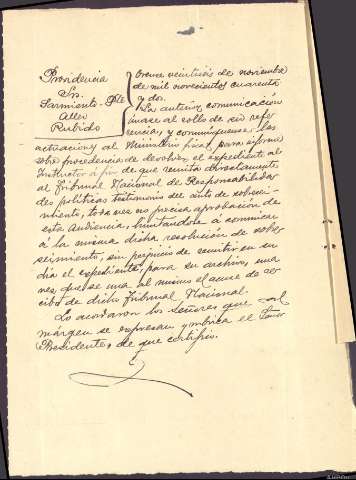 Providencia
Sres.
Sarmiento-Pte
Aller
Rubido
Orense veintiseis de noviembre
de mil novecientos cuarenta
y dos.
La anterior comunicación
únase al rollo de su refe
rencia, y comuníquense las
actuaciones al Ministerio fiscal, para informe
sobre procedencia de devolver el expediente al
Instructor a fin de que remita directamente
al Tribunal Nacional de Responsabilida
des políticas testimonio del auto de sobresei-
miento, toda vez no precisa aprobación de
esta Audiencia, limitándose á comunicar
á la misma dicha resolución de sobre
seimiento, sin perjuicio de remitir en su
día el expediente, para su archivo, una
vez que se una al mismo el acuse de re-
cibo de dicho Tribunal Nacional.
Lo acordaron los Señores que al
márgen se expresan y rubrica el Señor
Presidente, de que certifico.